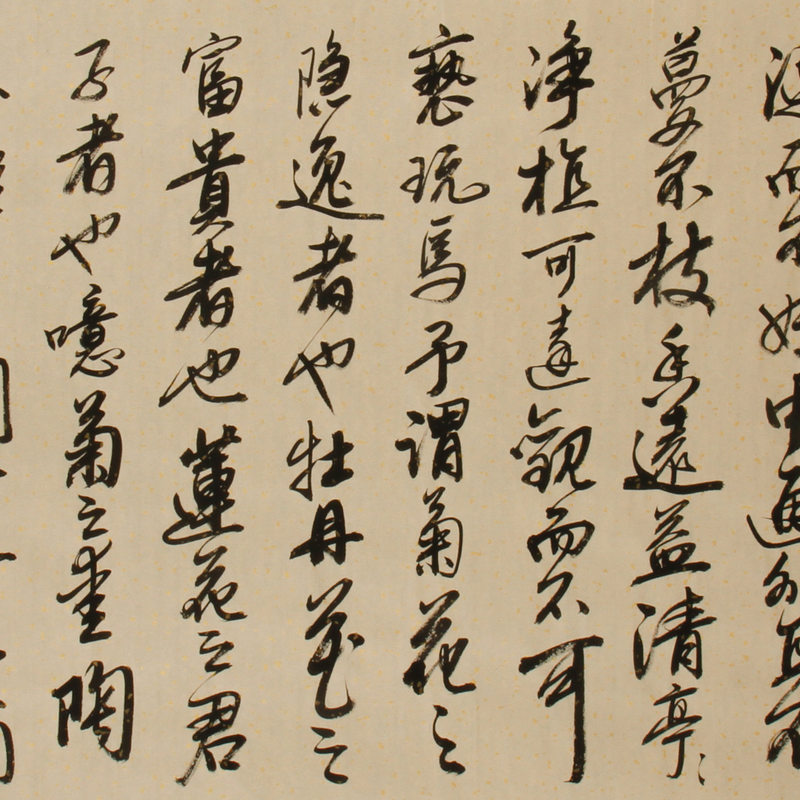 而不妖中通外直不
蔓不枝香遠益清亭〻
淨植可遠觀而不可
褻玩焉予謂菊花之
隐逸者也牡丹花之
富貴者也蓮花之君
子者也噫菊之愛陶